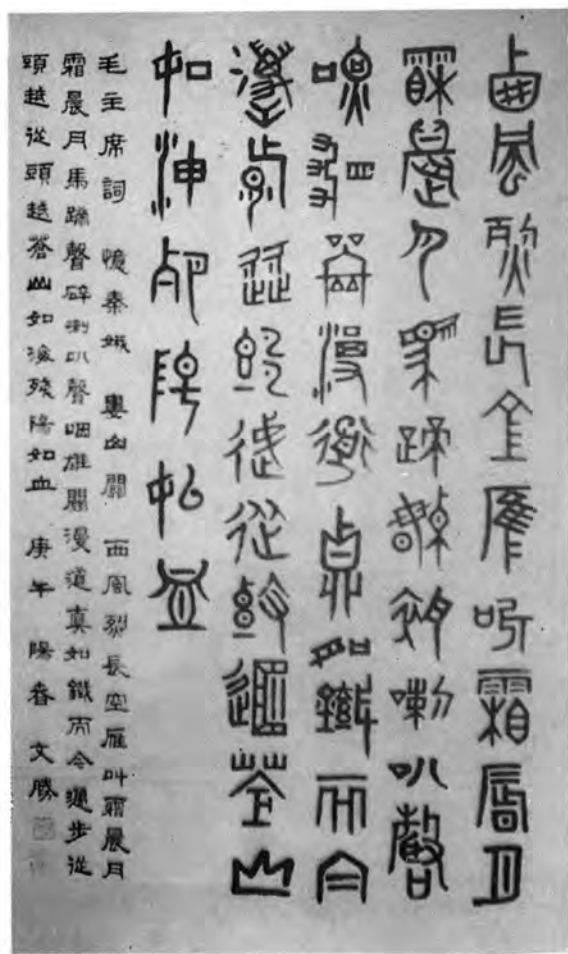 西風烈長空雁叫霜晨月
霜晨月馬蹄聲碎喇叭聲
咽雄關漫道真如鐵而今
邁步從頭越從頭越蒼山
如海殘陽如血
毛主席詞 憶秦娥 婁山關 西風烈長空雁叫霜晨月
霜晨月馬蹄聲碎喇叭聲咽雄關漫道真如鐵而今邁步從
頭越從頭越蒼山如海殘陽如血 庚午 陽春 文勝